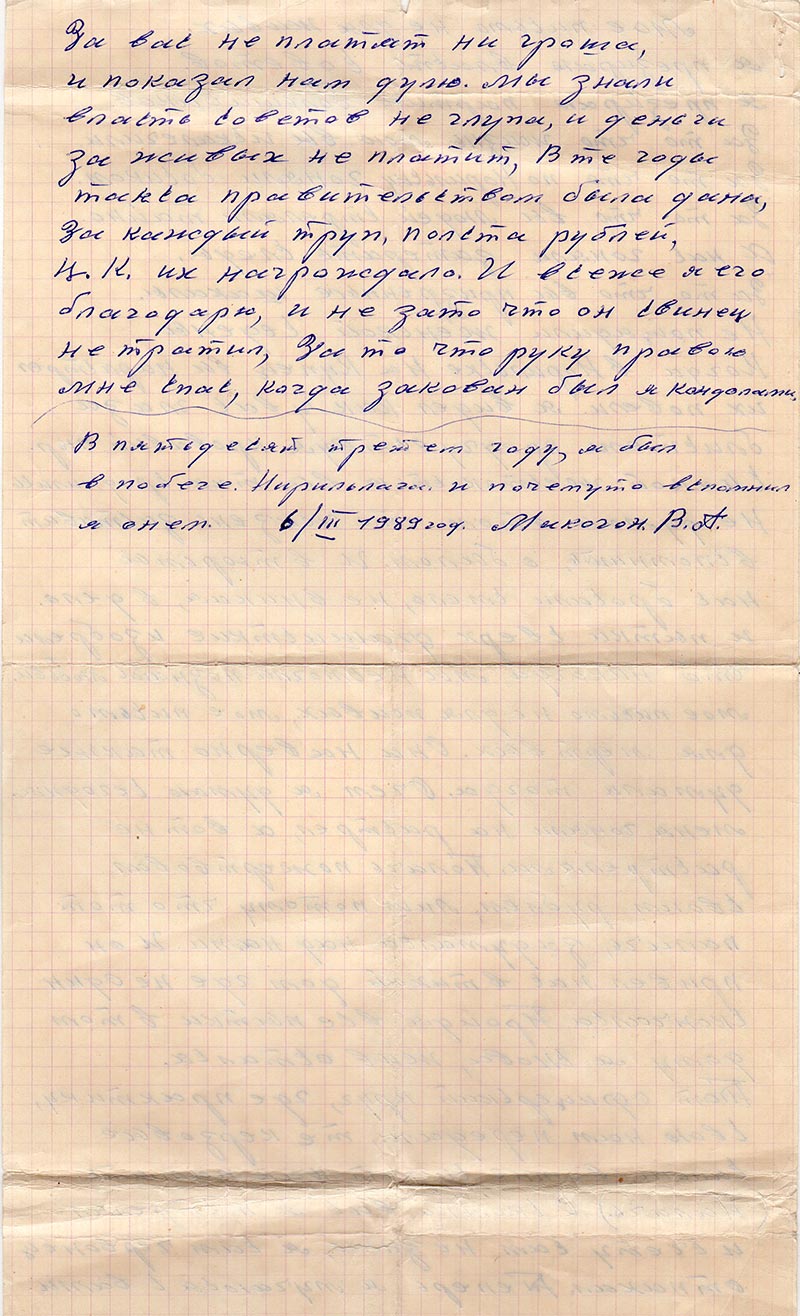 За вас не платят ни гроша,
и показал нам дулю. Мы знали
власть советов не глупа, и деньги
за живых не платит, В те годы
такса правительством была дана,
За каждый труп, полста рублей,
Ц. К. их награждало. И всеже я его
благодарю, и не зато что он свинец
не тратил, За то что руку правою
мне спас, когда закован был я кондолами,
В пятьдесят третем году, я был
в побеге. и почемуто вспомнил
я о нем. 6/III 1989 год. Микогон. В. П.